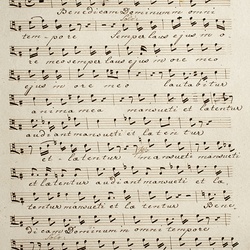 Benedicam Dominum in omni
tempore Semper laus ejus in o-
re meo semper laus ejus in ore meo
ejus in ore meo laudabitur
anima mea mansueti et latentur
audiant mansueti et latentur
et latentur mansueti mansueti
et latentur audiant mansueti et la
tentur mansueti et latentur Bene
dicam Dominum in omni tempore